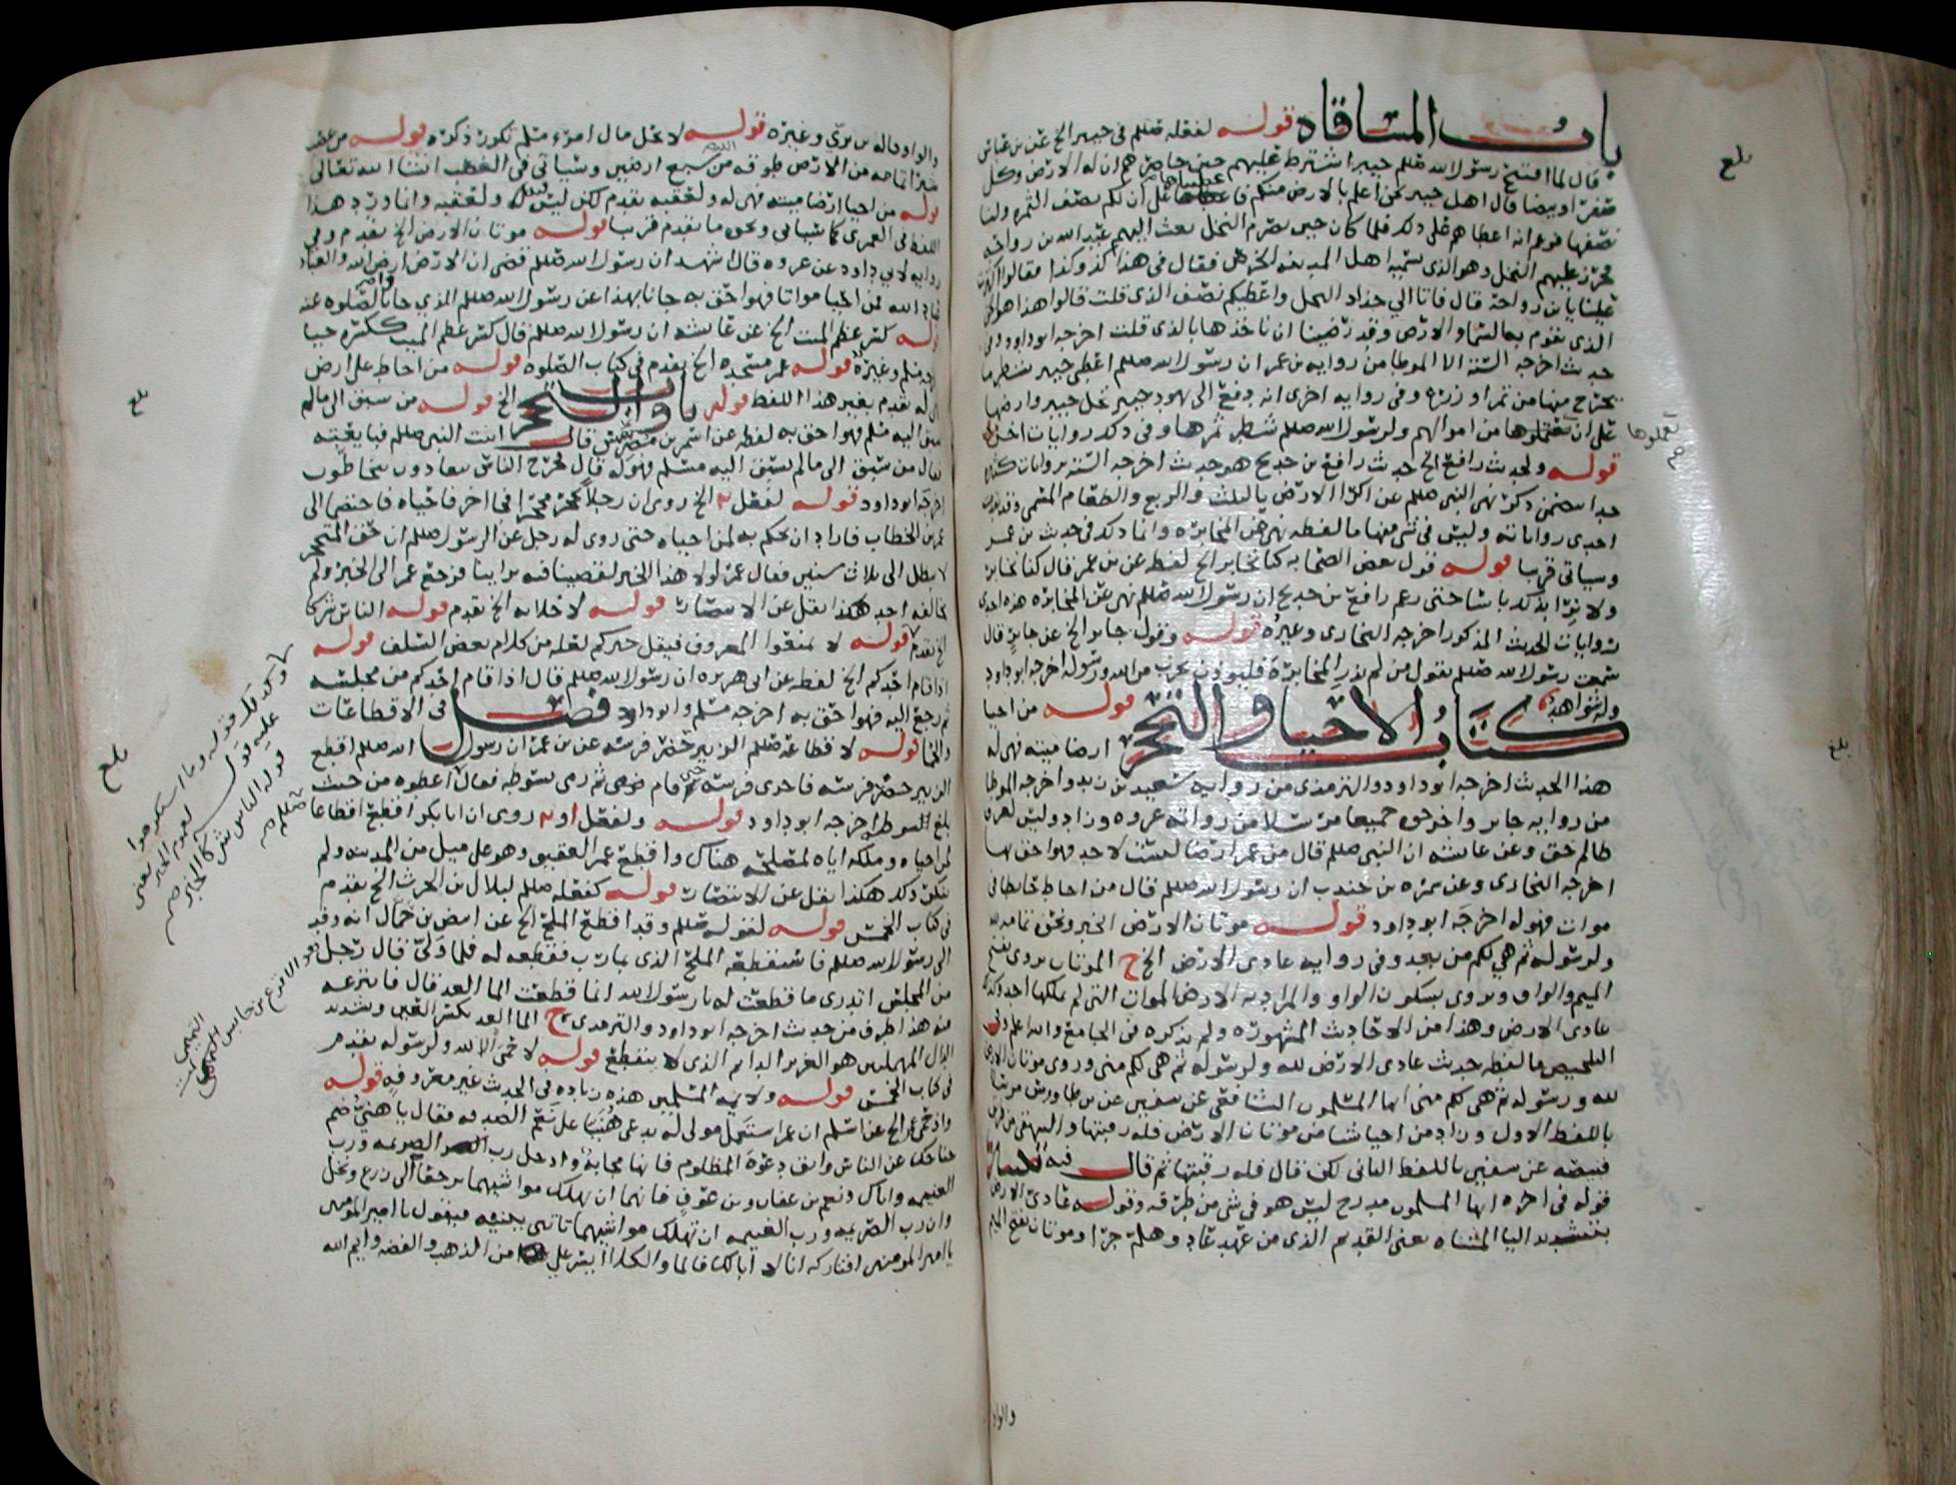 باب المساقاه قوله لفعله صللم في خيبر الخ عن بن عباس
قال لما افتتح رسول الله صللم خيبر اشترط عليهم حين حاصرهم ان له الارض وكل
صفرا وبيضا قال اهل خيبر نحن اعلم بالارض منكم فاعطناها على ان لكم نصف الثمره ولنا
نصفها فزعم انه اعطاهم على ذلك فلما كان حين يصرم النخل بعث اليهم عبد الله بن رواحه
فحزر عليهم النخل وهو الذي يسميه اهل المدينه الخرص فقال في هذا كذا وكذا فقالوا اكثرت
علينا يا بن رواحه قال فانا الي جذاذ النخل واعطيكم نصف الذي قلت قالوا هذا هو الحق
الذي تقوم به السما والارض وقد رضينا ان ناخذها بالذي قلت اخرجه ابو داود وفي
حديث اخرجه الستة الا الموطا من روايه بن عمر ان رسول الله صللم اعطى خيبر بشطر ما
يخرج منها من ثمر او زرع وفي روايه اخرى انه دفع الى يهود خيبر نخل خيبر وارضها
على ان يعتملوها من اموالهم ولرسول الله صللم شطر ثمرها وفي ذلك روايات اخر
قوله ولحديث رافع الخ حديث رافع بن خديج هو حديث اخرجه الستة بروايات كثيره
جدا تتضمن ذكر نهي النبي صللم عن اكرا الارض بالثلث والربع والطعام المسمى
احدى رواياته وليس في شي منها ما لفظه نهى عن المخابره وانما ذلك في حديث بن عمر
وسياتي قريبا قوله قول بعض الصحابه كنا نخابر الخ لفظه عن بن عمر قال كنا نخابر
ولا نرا بذلك باسا حتى زعم رافع بن خديج ان رسول الله صللم نهى عن المخابره هذه احدى
روايات الحديث المذكور اخرجه البخاري وغيره قوله وقول جابر الخ عن جابر قال
سمعت رسول الله صللم يقول من لم يذر المخابرة فليوذن بحرب من الله ورسوله اخرجه ابو داود
وله شواهد كتاب الاحيا والتحجر قوله من احيا
ارضا ميته فهي له
هذا الحديث اخرجه ابو داود والترمذي من روايه سعيد بن زيد واخرجه الموطا
من روايه جابر واخرجوه جميعا مرسلا من رواية عروه وزاد وليس لعرق
ظالم حق وعن عايشه ان النبي صللم قال من عمر ارضا ليست لاحد فهو احق بها
اخرجه البخاري وعن سمره بن جندب ان رسول الله صللم قال من احاط حايطا في
موات فهو له اخرجه ابو داود قوله موتان الارض الخبر ونحوه تمامه لله
ولرسوله ثم هي لكم من بعد وفي روايه عادي الارض الخ ح الموتان يروى بفتح
الميم والواو ويروى بسكون الواو والمراد به الارض الموات التي لم يملكها احد وكذا
عادي الارض وهذا من الاحاديث المشهوره ولم يذكره في الجامع والله اعلم وفي
التلخيص ما لفظه حديث عادي الارض لله ولرسوله ثم هي لكم مني وروى موتان الارض
لله ورسوله ثم هي لكم مني ايها المسلمون الشافعي عن سفين عن بن طاوس مرسلا
باللفظ الاول وزاد من احيا شيا من موتان الارض فله رقبتها والبيهقي من طريق
قبيصه عن سفين باللفظ الثاني لكن قال فله رقبتها ثم قال
قوله في اخره ايها المسلمون مدرج ليس هو في شي من طرقه وقوله عادي الارض
بتشديد اليا المثناه يعني القديم الذي من عهد عاد وهلم جرا وموتان بفتح الميم
بلغ
يعملوها
صح
بلغ
والواو
والواو قاله بن بري وغيره قوله لا يحل مال امرء مسلم تكرر ذكره قوله من غصب
شبرا تمامه من الارض طوقه من سبع ارضين وسياتي في الغصب انشا الله تعالى
قوله من احيا ارضا ميته فهي له ولعقبه تقدم لكن ليس فيه ولعقبه وانما ورد هذا
اللفظ في العمرى كما سياتي ونحوه ما تقدم قريبا قوله موتان الارض الخ تقدم وفي
روايه لابي داود عن عروه قال اشهد ان رسول الله صللم قضى ان الارض ارض الله والعباد
عباد الله فمن احيا مواتا فهو احق به جانا بهذا عن رسول الله صللم الذي جانا بالصلوه عنه
قوله كسر عظم الميت الخ عن عايشه ان رسول الله صللم قال كسر عظم الميت ككسره حيا
اخرجه مسلم وغيره قوله عمر مسجده الخ تقدم في كتاب الصلوه قوله من احاط على ارض
فهي له تقدم بغير هذا اللفظ قوله باب التحجر الخ قوله من سبق الى ما لم
يسبق اليه مسلم فهو احق به لفظه عن اسمر بن مضرس قال اتيت النبي صللم فبايعته
فقال من سبق الى ما لم يسبق اليه مسلم فهو له قال فخرج الناس يتعادون يتخاطون
اخرجه ابو داود قوله لفعل الخ روي ان رجلا تحجر محجرا في اخر فاحياه فاختصما الى
عمر بن الخطاب فاراد ان يحكم به لمن احياه حتى روى له رجل عن الرسول صللم ان حق المتحجر
لا يبطل الى ثلاث سنين فقال عمر لولا هذا الخبر لقضينا فيه براينا فرجع عمر الى الخبر ولم
يخالفه احد هكذا نقل عن الانتصار قوله لا خلابه الخ تقدم قوله الناس شركا
الخ تقدم قوله لا تمنعوا المعروف فيقل خيركم لعله من كلام بعض السلف قوله
اذا قام احدكم الخ لفظه عن ابي هريره ان رسول الله صللم قال اذا قام احدكم من مجلسه
ثم رجع اليه فهو احق به اخرجه مسلم وابو داود فصل في الاقطاعات
والحما قوله لاقطاعه صللم الزبير حضر فرسه عن بن عمر ان رسول الله صللم اقطع
الزبير حضر فرسه فاجرى فرسه حتى قام فرمى ثم رمى بسوطه فقال اعطوه من حيث
بلغ السوط اخرجه ابو داود قوله ولفعل روى ان ابا بكر اقطع اقطاعا
لمن احياه وملكه اياه لمصلحه هناك واقطع عمر العقيق وهو على ميل من المدينه ولم
ينكر ذلك هكذا نقل عن الانتصار قوله كفعله صللم لبلال بن الحرث الخ تقدم
في كتاب الخمس قوله لقوله صللم وقد اقطع الملح الخ عن ابيض بن حمال انه وفد
الى رسول الله صللم فاستقطعه الملح الذي بمارب فقطعه له فلما ولى قال رجل
من المجلس اتدري ما قطعت له يا رسول الله انما قطعت الما العد قال فانتزعه
منه هذا طرف من حديث اخرجه ابو داود والترمذي ح الما العد بكسر العين وتشديد
الدال المهملتين هو الغزير الدايم الذي لا ينقطع قوله لا حمى الا لله ولرسوله تقدم
في كتاب الخمس قوله ولايمه المسلمين هذه زياده في الحديث غير معروفه قوله
واذ حمى عمر الخ عن اسلم ان عمر استعمل مولى له يدعى هنيا على نعم الصدقه فقال يا هني ضم
جناحك عن الناس واتق دعوة المظلوم فانها مجابة وادخل رب الصريمه ورب
الغنيمه واياك ونعم بن عفان وبن عوف فانهما ان تهلك مواشيهما يرجعا الى زرع ونخل
وان رب الصريمه ورب الغنيمه ان تهلك مواشيهما ياتني ببنيه فيقول يا امير المومنين
يا امير المومنين افتاركه انا لا ابا لك فالما والكلا ايسر علي من الذهب والفضه وايم الله
بلغ
بلغ
هو الاقرع بن حابس التميمي
التميمي